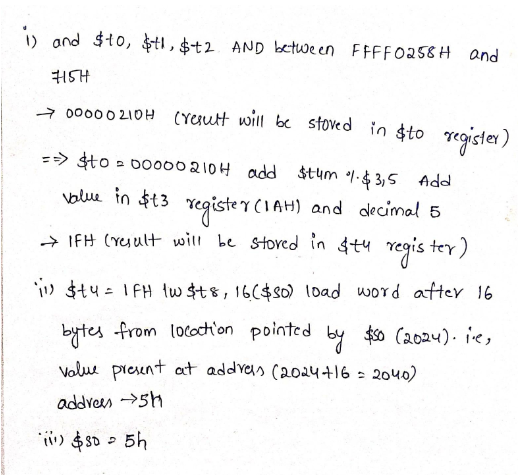 i) and $t0, $t1, $t2 AND between FFFF0258H and
715H
→ 00000210H (result will be stored in $to register)
==> $to = 00000210H add $t4m %.$3,5 Add
value in $t3 register (1AH) and decimal 5
→ 1FH (result will be stored in $t4 register)
ii) $t4 = 1FH lw $t8, 16($s0) load word after 16
bytes from location pointed by $s0 (2024). i.e,
value present at address (2024+16 = 2040)
address →5h
iii) $s0 = 5h